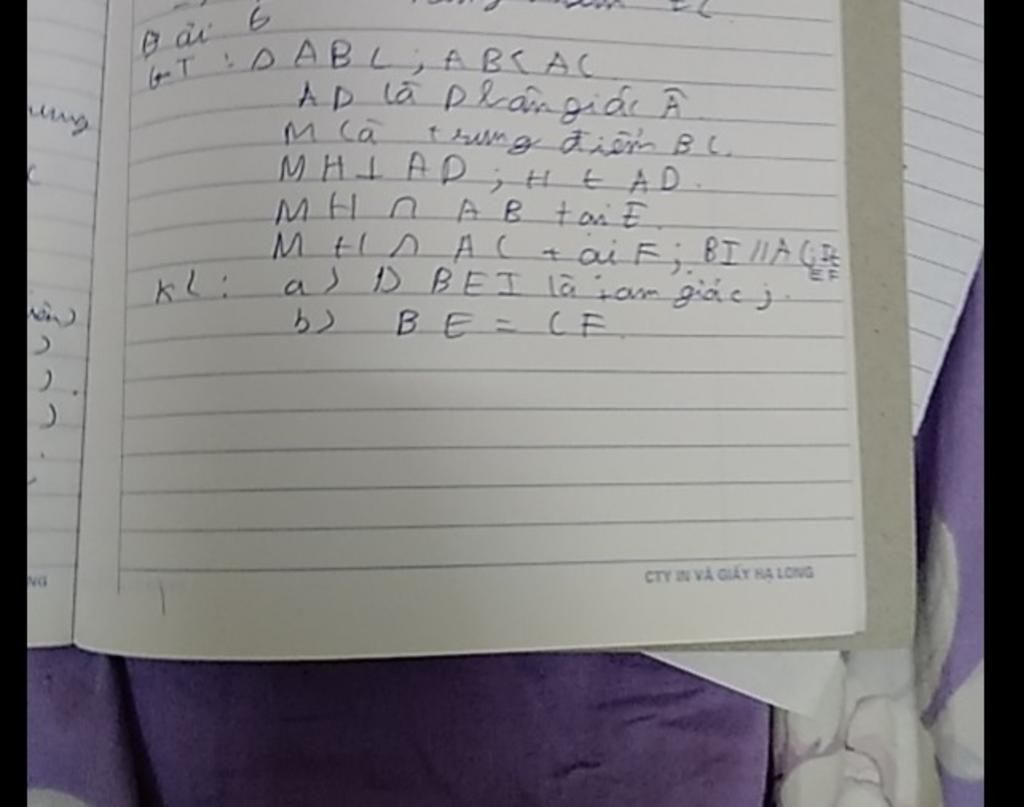 Bài 6
GT : Δ ABC ; AB < AC
AD là phân giác Â
M là trung điểm BC.
MH ⊥ AD ; H ∈ AD.
MH ∩ AB tại E.
MH ∩ AC tại F ; BI // AC ; I ∈
EF
KL : a) Δ BEI là tam giác
b) BE = CF
CTY IN VÀ GIẤY HẠ LONG